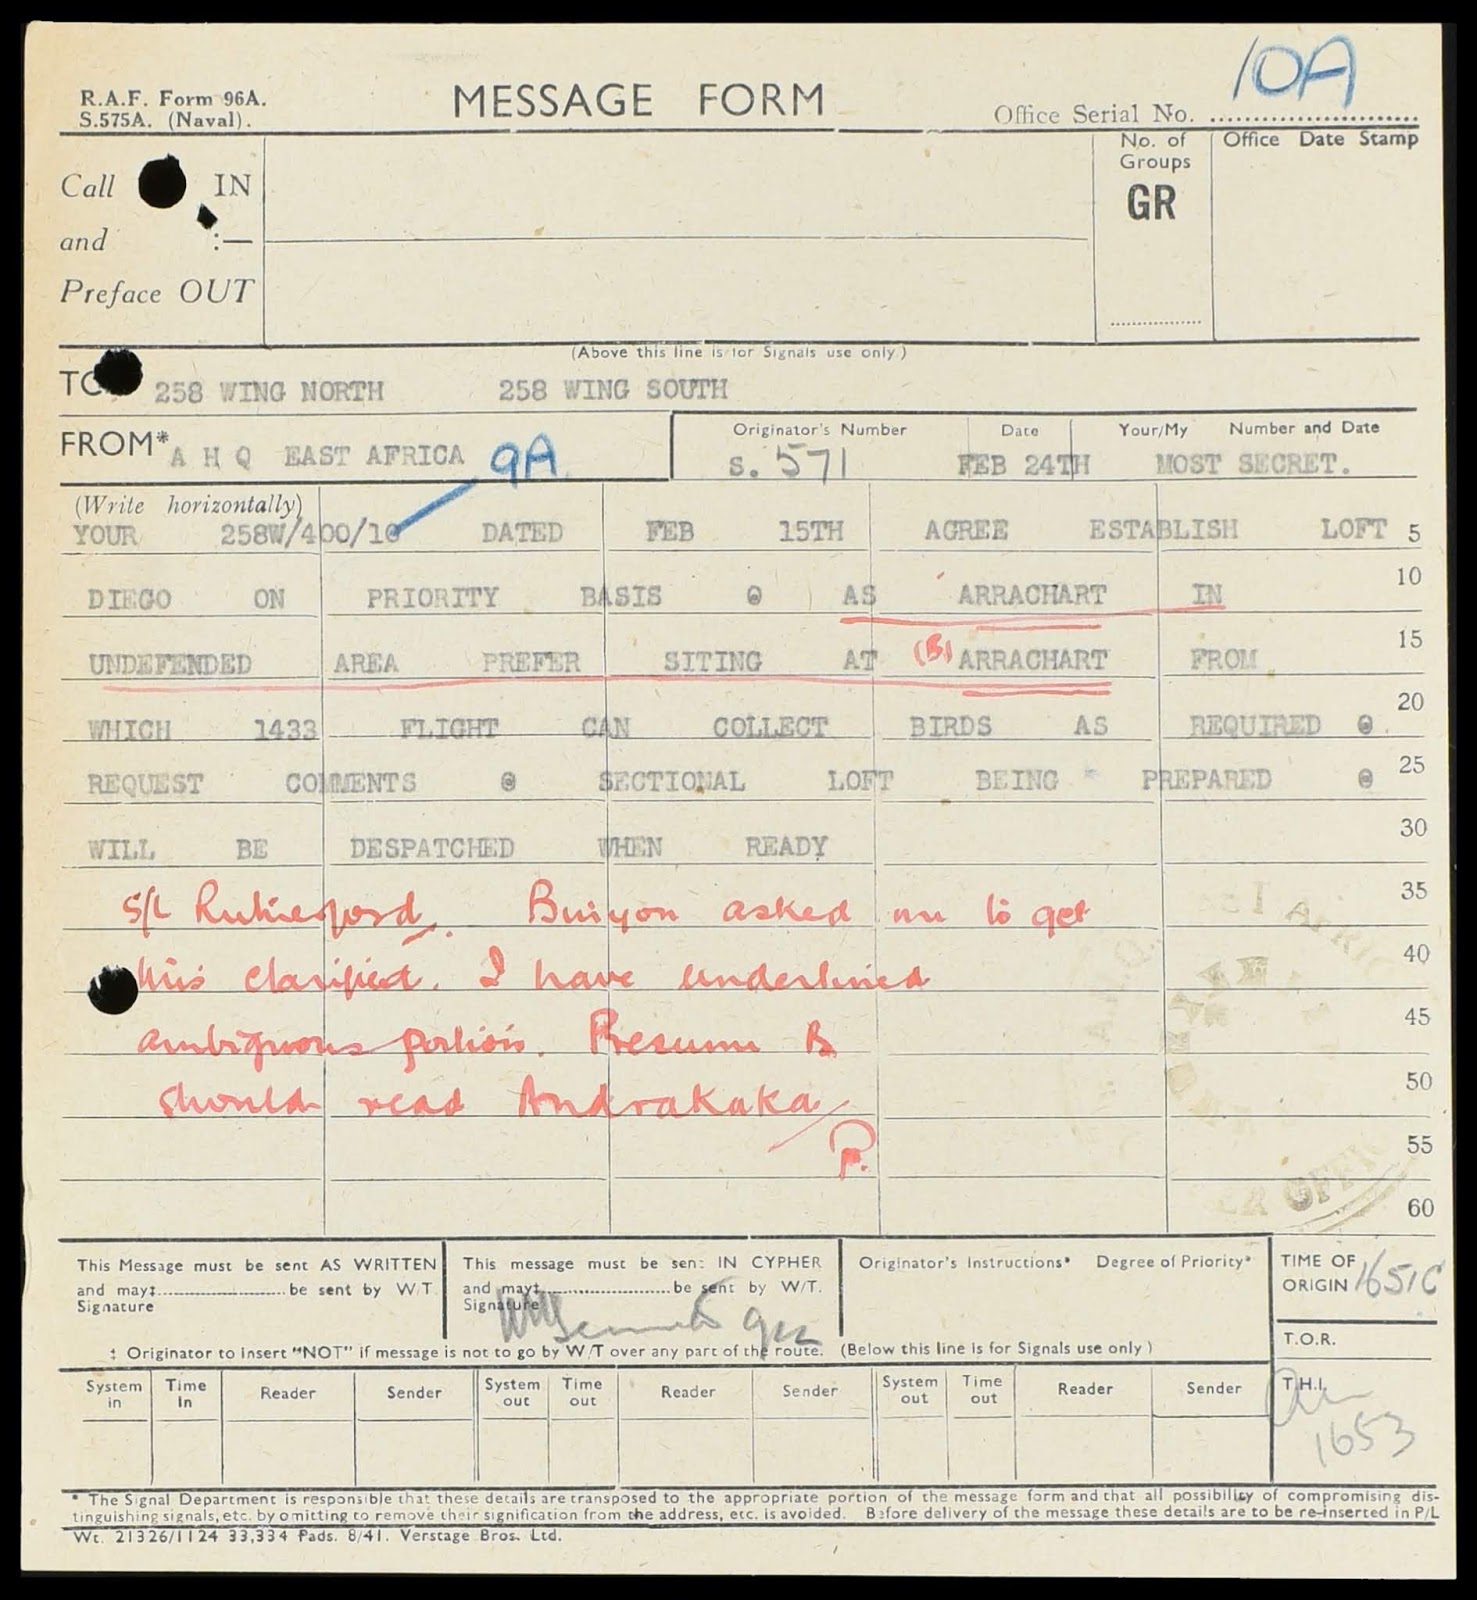 10A
R.A.F. Form 96A.
S.575A. (Naval).
MESSAGE FORM
Office Serial No. ..........
No. of Groups
GR
Office Date Stamp
Call IN
and :—
Preface OUT
(Above this line is for Signals use only.)
TO 258 WING NORTH 258 WING SOUTH
FROM* A H Q EAST AFRICA 9A
Originator's Number Date Your/My Number and Date
S. 571 FEB 24TH MOST SECRET.
(Write horizontally)
YOUR 258W/400/10 DATED FEB 15TH AGREE ESTABLISH LOFT 5
DIEGO ON PRIORITY BASIS @ AS ARRACHART IN 10
UNDEFENDED AREA PREFER SITING AT (B) ARRACHART FROM 15
WHICH 1433 FLIGHT CAN COLLECT BIRDS AS REQUIRED @ . 20
REQUEST COMMENTS @ SECTIONAL LOFT BEING PREPARED @ 25
WILL BE DESPATCHED WHEN READY 30
S/L Rutherford. Bunyon asked me to get 35
this clarified. I have underlined 40
ambiguous portion. Presume B 45
should read Andrakaka 50
P. 55
60
This Message must be sent AS WRITTEN
and may‡..........be sent by W/T.
Signature
This message must be sent IN CYPHER
and may‡..........be sent by W/T.
Signature
Originator's Instructions* Degree of Priority*
TIME OF ORIGIN 1651C
T.O.R.
‡ Originator to insert "NOT" if message is not to go by W/T over any part of the route. (Below this line is for Signals use only)
System in Time in Reader Sender System out Time out Reader Sender System out Time out Reader Sender
T.H.I.
1653
* The Signal Department is responsible that these details are transposed to the appropriate portion of the message form and that all possibility of compromising dis-
tinguishing signals, etc. by omitting to remove their signification from the address, etc. is avoided. Before delivery of the message these details are to be re-inserted in P/L
Wt. 21326/1124 33,334 Pads. 8/41. Verstage Bros. Ltd.